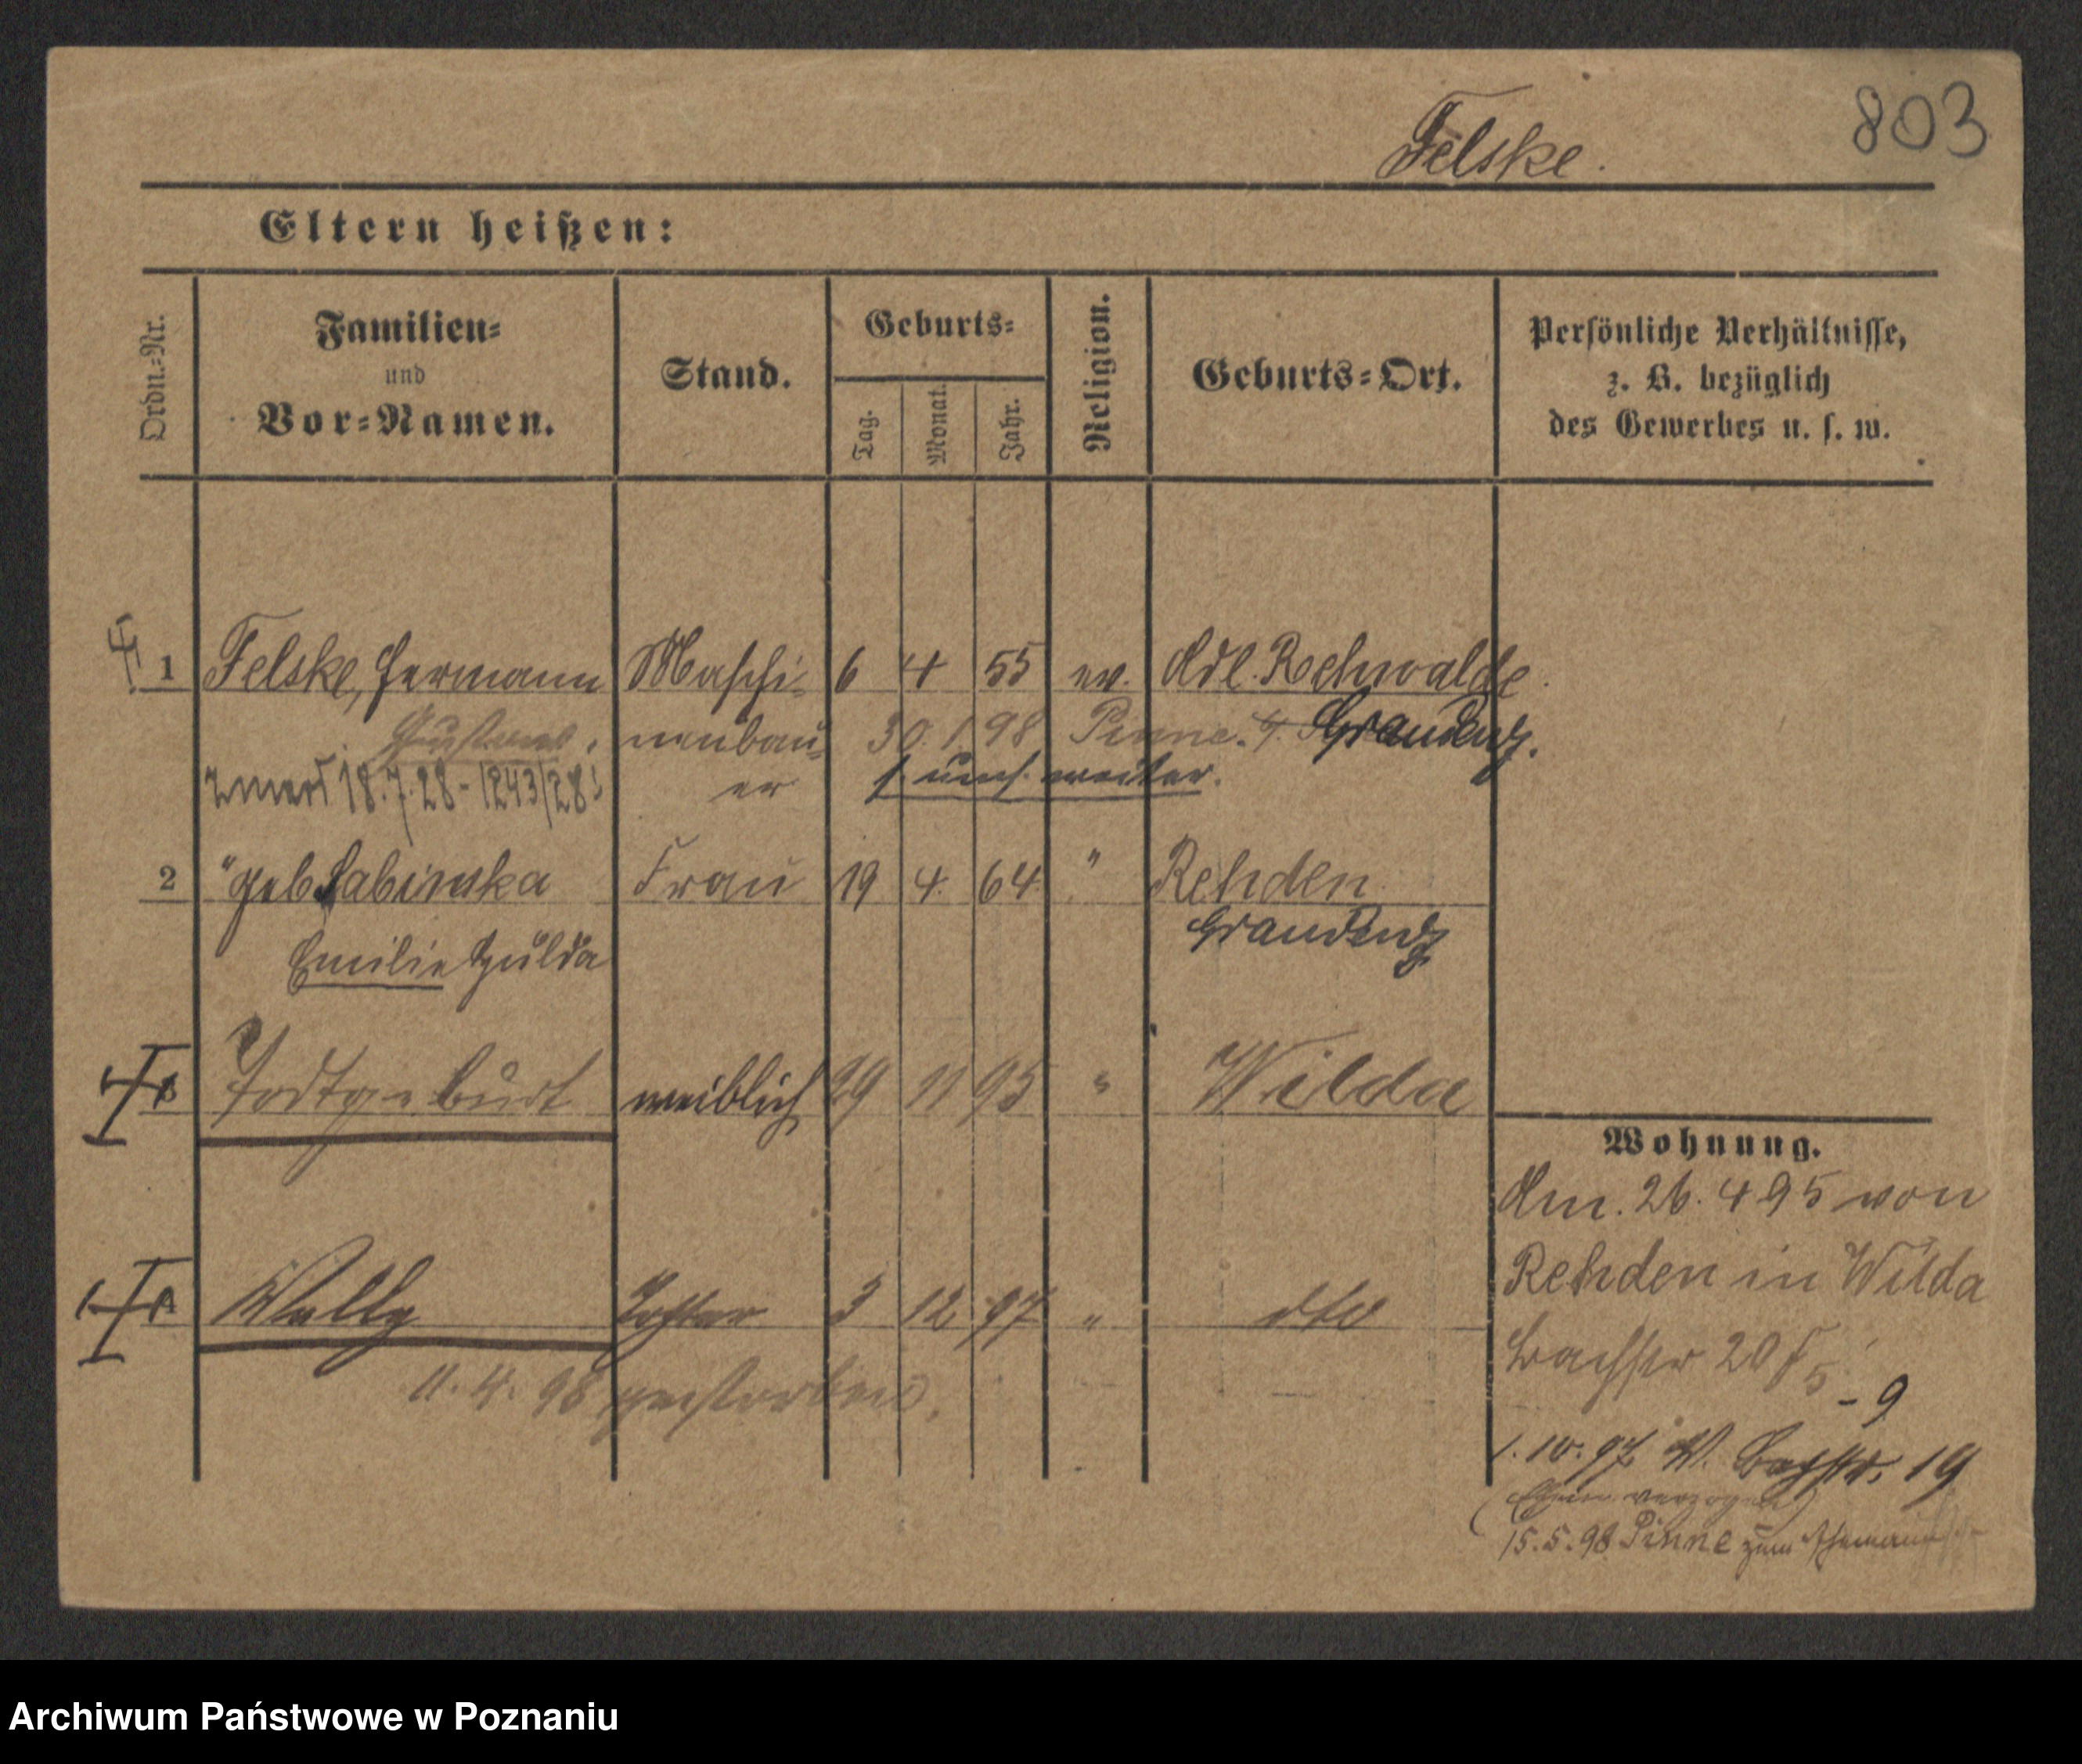 803
Felske.
Eltern heißen:
Ordn.-Nr.
Familien-
und
Vor-Namen.
Stand.
Geburts-
Tag.
Monat.
Jahr.
Religion.
Geburts-Ort.
Persönliche Verhältnisse,
z. B. bezüglich
des Gewerbes u. s. w.
1 Felske, Hermann Maschi- 6 4 55 ev. Adl. Rehwalde
Gustav. nenbau- 30. 1 98 Pinne. Graudenz.
zmarł 18.7.28 - 1243/28 er s. umst. weiter.
2 " geb Sabinska Frau 19 4. 64 " Rehden
Emilie Hulda Graudenz
3 Todtgeburt weiblich 29 11 95 " Wilda
Wohnung.
Am. 26. 4 95 von
Rehden in Wilda
4 Wally Tochter 3 12 97 " dto
Bachstr 20
11. 4. 98 gestorben.
- 9
1. 10. 97 W. Bachstr. 19
verzogen)
15. 5. 98 Pinne zum Ehemann
Archiwum Państwowe w Poznaniu